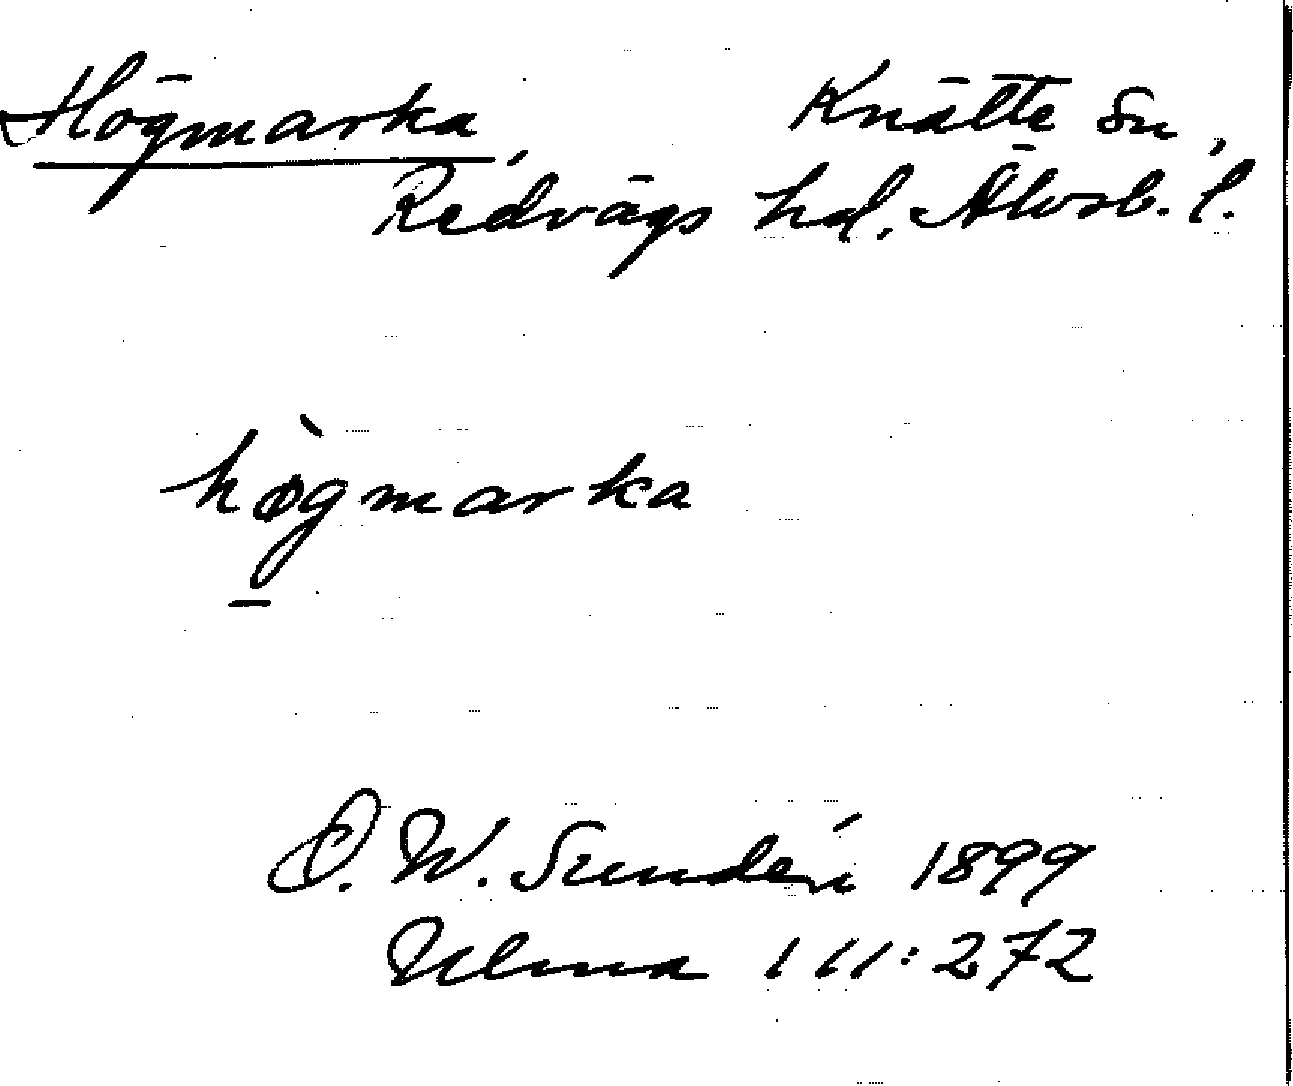 Högmarka, Knätte sn,
Redvägs hd. Älvsb. l.
hø̀gmarka
D. W. Sundén 1899
Ulma 111:272